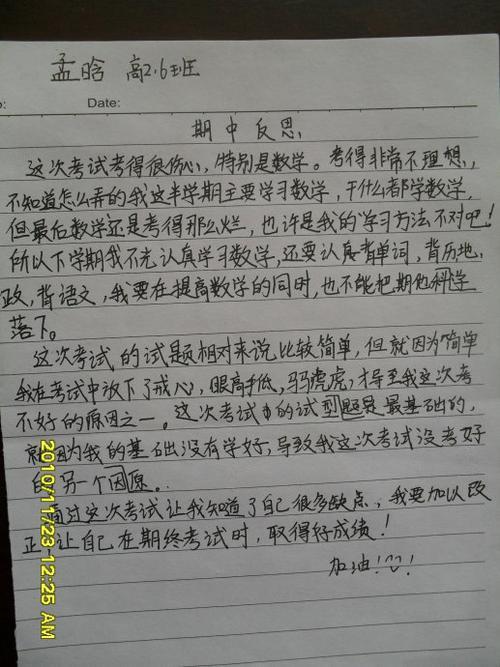 孟晗 高2.6班
Date:
期中反思
这次考试考得很伤心,特别是数学。考得非常不理想,
不知道怎么弄的我这半学期主要学习数学,干什么都学数学,
但最后数学还是考得那么烂,也许是我的学习方法不对吧!
所以下学期我不光认真学习数学,还要认真背单词,背历地,
政,背语文,我要在提高数学的同时,也不能把期他科学
落下。
这次考试的试题相对来说比较简单,但就因为简单
我在考试中放下了戒心,眼高手低,马马虎虎,才导至我这次考
不好的原因之一。这次考试中的试型题是最基础的,
就因为我的基础没有学好,导致我这次考试没考好
的另一个因原。
通过这次考试让我知道了自己很多缺点,我要加以改
正,让自己在期终考试时,取得好成绩!
加油!!
2010/11/23-12:25 AM